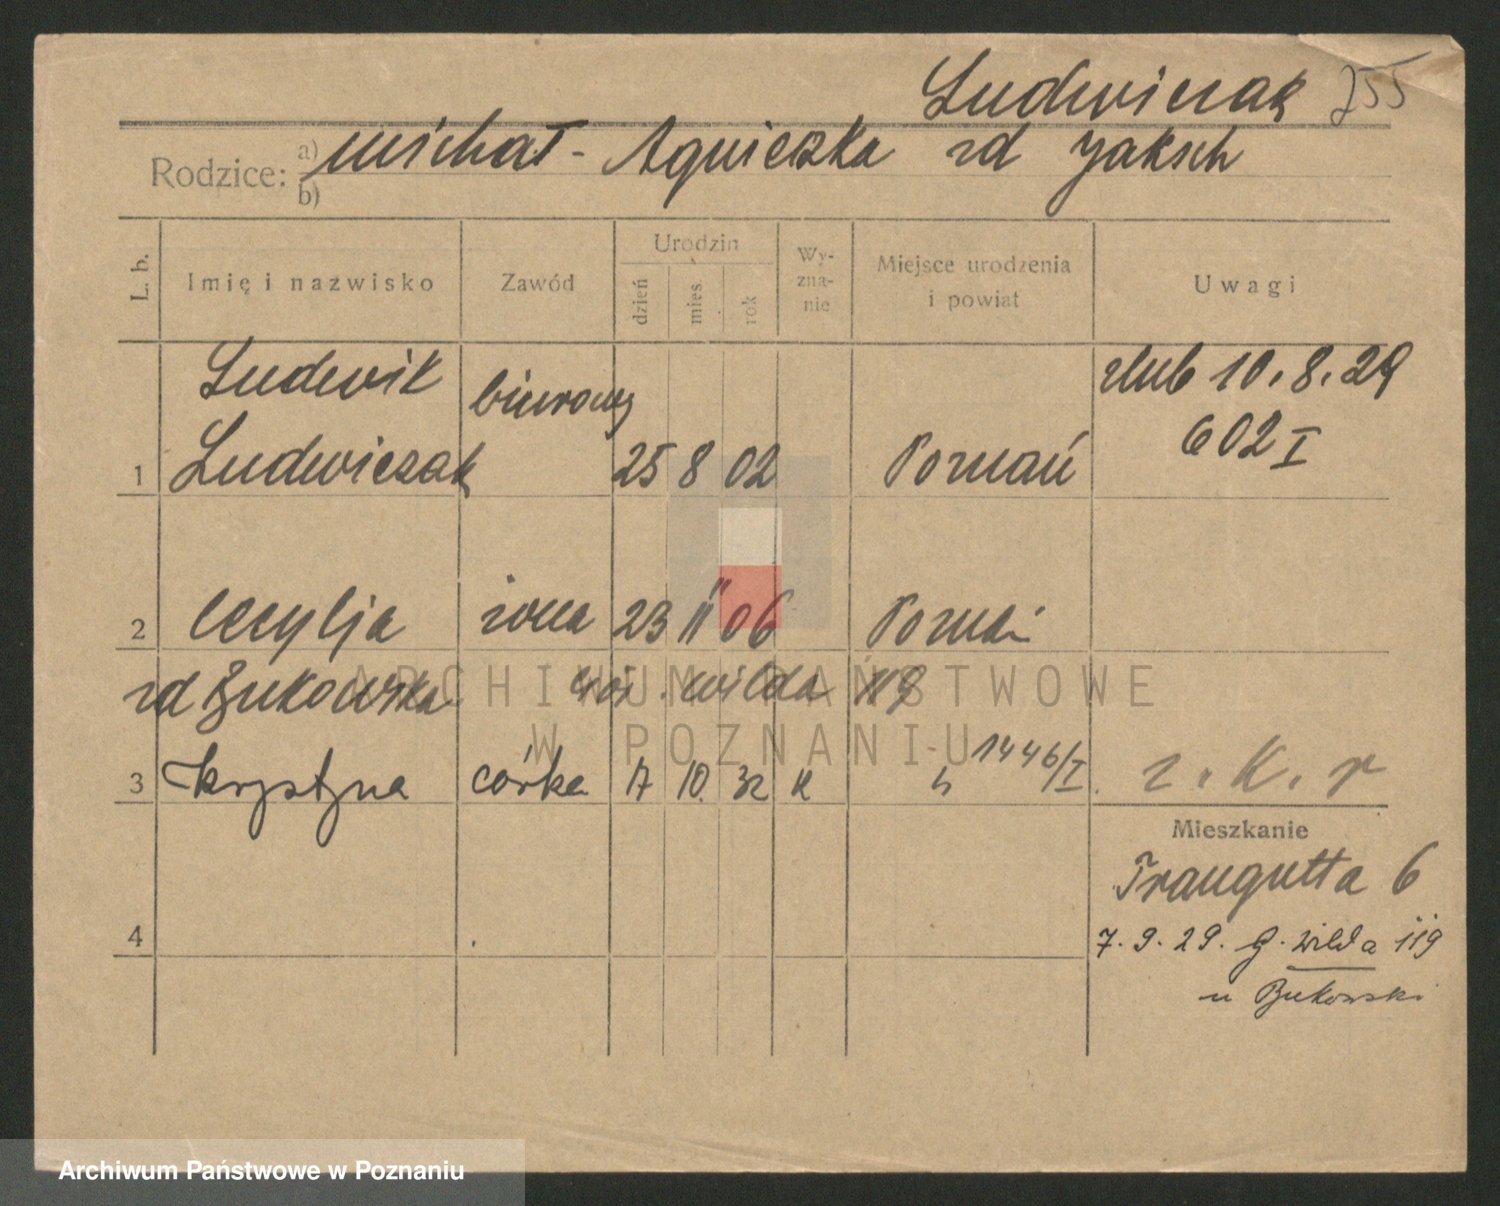 Ludwiczak 755
Rodzice: a) Michał - Agnieszka zd Jaksch
b)
L. b. Imię i nazwisko Zawód Urodzin dzień mies. rok Wy- zna- nie Miejsce urodzenia i powiat Uwagi
Ludwik biurowy ślub 10.8.29
1 Ludwiczak 25 8 02 Poznań 602 I
2 Cecylja żona 23 11 06 Poznań
zd Bukowska Wilda 119
3 Krystyna córka 17 10. 32 K 1446/I z. K. r
Mieszkanie
Traugutta 6
4 7.9.29. G. Wilda 119
u Bukowski
ARCHIWUM PAŃSTWOWE
W POZNANIU
Archiwum Państwowe w Poznaniu